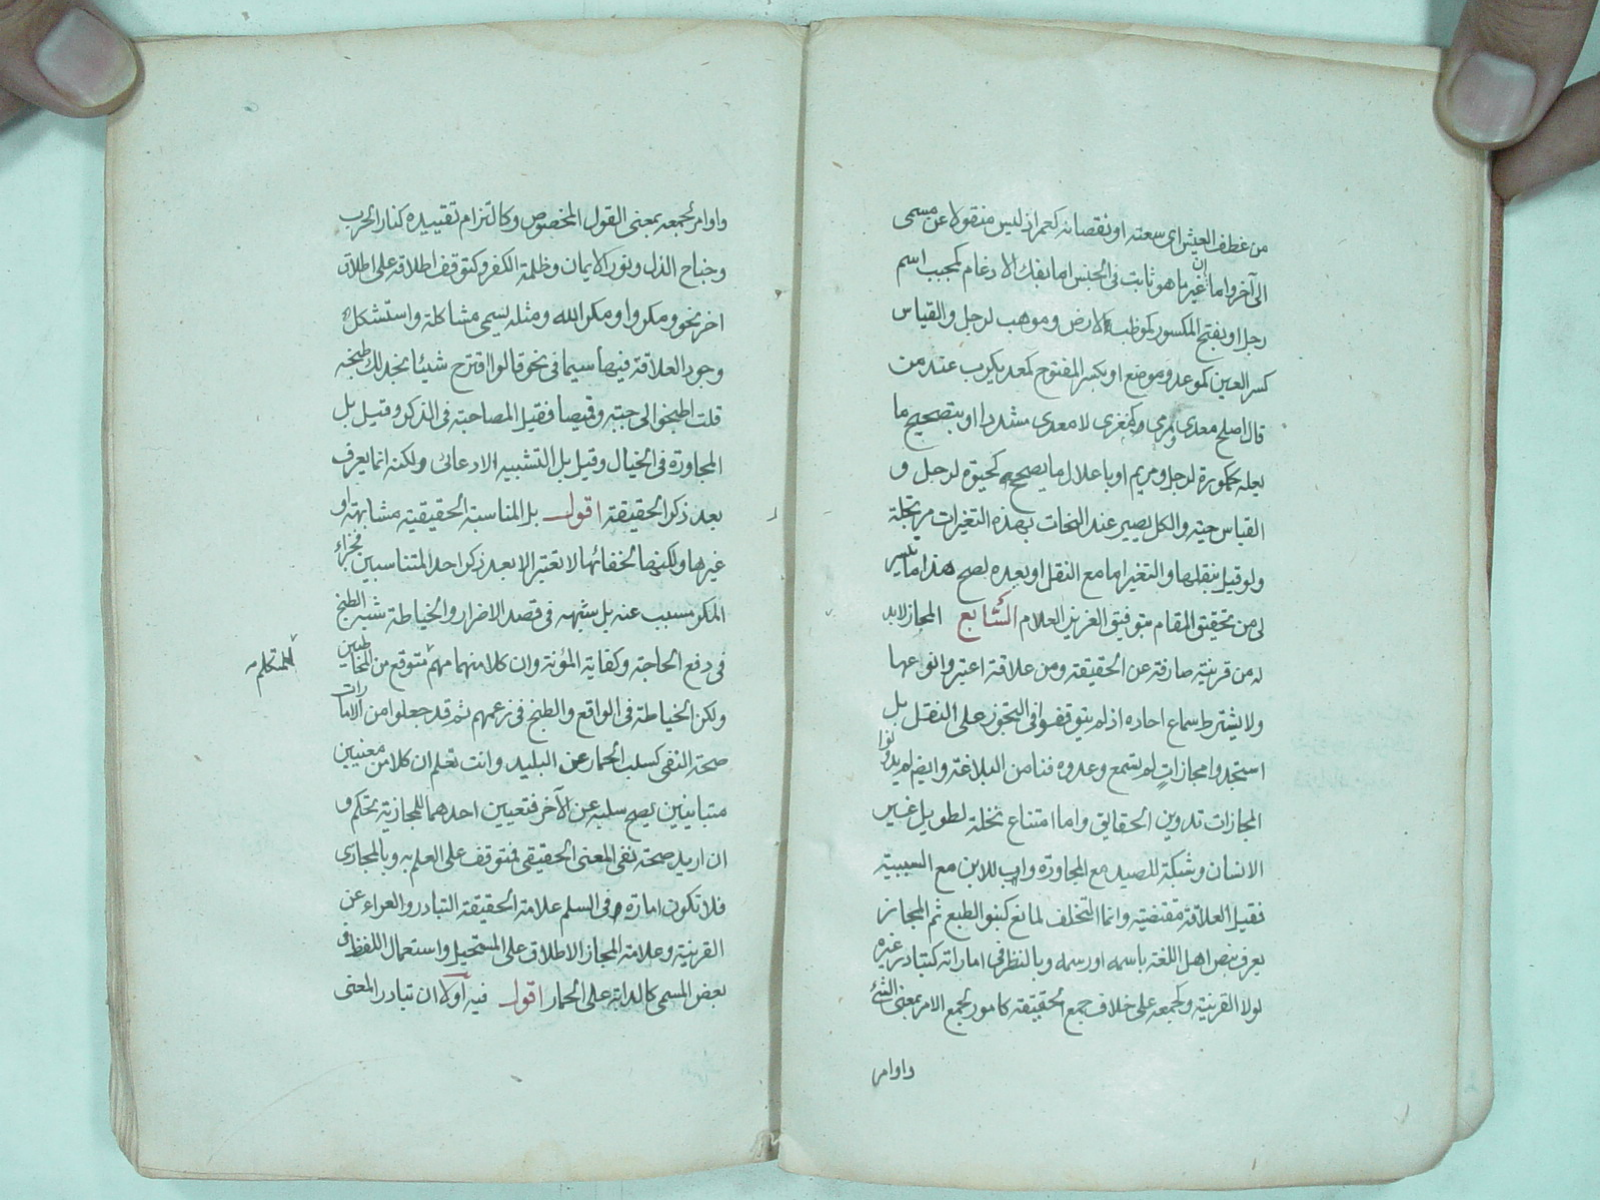 من غطف العيش اى سعته او نقصانه كعمر اذ ليس منقولا عن مسمى
الى آخر واما ان غير ما هو ثابت فى الجنس اما بفك الادغام كمحبب اسم
رجل او بفتح المكسور كموظب الارض وموهب لرجل والقياس
كسر العين كموعد وموضع او بكسر المفتوح كمعد يكرب عند من
قال اصلح معدى ومرمى ومغزى لا معدى مشددا او بتصحيح ما
يعله كمكورة لرجل ومريم او باعلال ما يصححه كحيوة لرجل و
القياس حية والكل يصير عند النحات بهذه التغيرات مرتجلة
ولو قيل بنقلها والتغير اما مع النقل او بعده لصح هذا ما تيسر
لى من تحقيق المقام بتوفيق العزيز العلام السابع المجاز لابد
له من قرينة صارفة عن الحقيقة ومن علاقة اعتبر وانواعها
ولا يشترط سماع احاده اذ لم يتوقفوا فى التجوز على النقل بل
استجدوا مجازات لم يسمع وعدوه فنا من البلاغة وايضم لم يدونوا
المجازات تدوين الحقايق واما امتناع نخلة لطويل غير
الانسان وشبكة للصيد مع المجاورة واب للابن مع السببية
فقيل العلاقة مقتضية وانما التخلف لمانع كنبو الطبع ثم المجاز
يعرف بنص اهل اللغة باسمه اورسمه وبالنظر فى اماراته كتبادر غيره
لولا القرينة وكجمعه على خلاف جمع الحقيقة كامور لجمع الامر بمعنى الشئ
داوامر
واوامر لجمعه بمعنى القول المخصوص وكالتزام تقييده كنار الحرب
وجناح الذل ونور الايمان وظلمة الكفر وكتوقف اطلاقه على اطلاق
اخر نحو ومكروا ومكر الله ومثله يسمى مشاكلة واستشكل
وجود العلاقة فيها سيما فى نحو قالوا اقترح شيئا نجد لك طبخه
قلت اطبخوا لى جبة وقميصا فقيل المصاحبة فى الذكر وقيل بل
المجاورة فى الخيال وقيل بل التشبيه الادعائى ولكنه انما يعرف
بعد ذكر الحقيقة اقول بل المناسبة الحقيقية مشابهة او
غيرها ولكنها لخفائها لا تعتبر الا بعد ذكر احد المتناسبين فجزاء
المكر مسبب عنه بل شبهه فى قصد الاضرار والخياطة شبه الطبخ
فى دفع الحاجة وكفاية المؤنة وان كلا منهما مهم متوقع من المخاطبين
للمتكلم
ولكن الخياطة فى الواقع والطبخ فى زعمهم ثم قد جعلوا من الامارات
صحة النفى كسلب الحمار عن البليد وانت تعلم ان كلا من معنيين
متباينين يصح سلبه عن الآخر فتعيين احدهما للمجازية تحكم و
ان اريد صحة نفى المعنى الحقيقى فتوقف على العلم به وبالمجازى
فلا تكون امارة وفى السلم علامة الحقيقة التبادر والعراء عن
القرينة وعلامة المجاز الاطلاق على المستحيل واستعمال اللفظ فى
بعض المسمى كالدابة على الحمار اقول فيه اولا ان تبادر المعنى